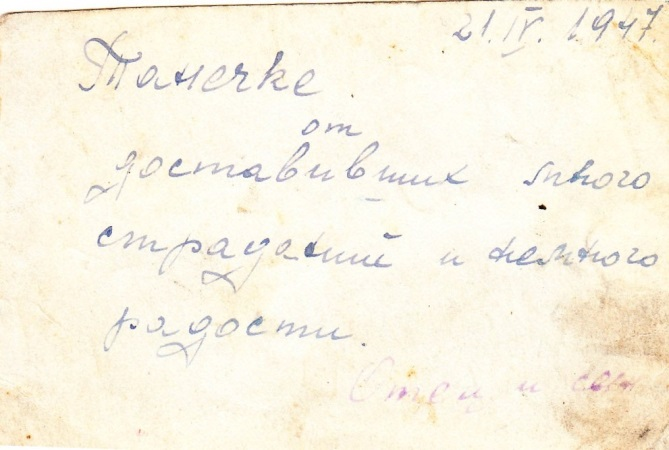 21.IV.1947.
Танечке
от
доставивших много
страданий и немного
радости.
Отец и сын